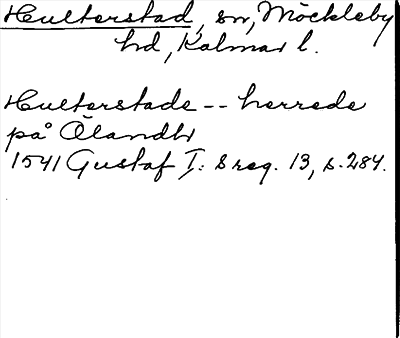 Hulterstad, sn, Möckleby
hd, Kalmar l.
Hulterstade -- herrede
på Ölandh
1541 Gustaf I: s reg. 13, s. 284.